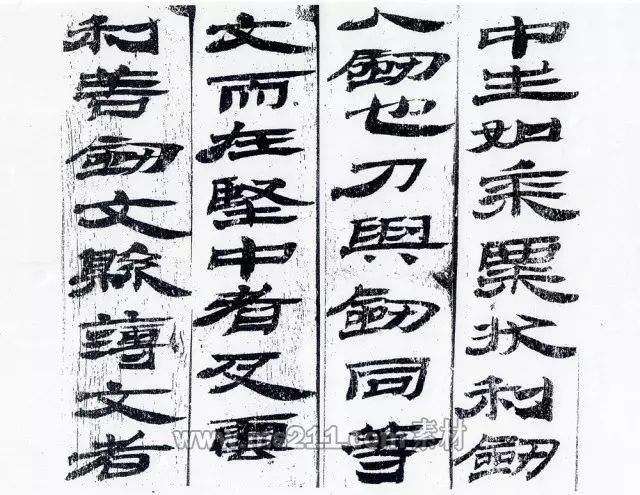 中生如黍粟狀利劍
劍也刀與劍同等
文而在堅中者及雲
利善劍文縣薄文者
www.ms211.com素材